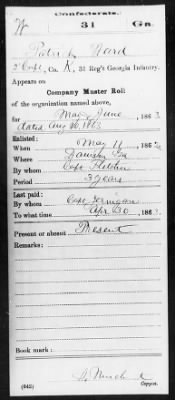 Confederate.
W 31 Ga.
Ward
Co. K, 31 Reg't Georgia Infantry.
Appears on
Company Muster Roll
of the organization named above,
for May & June, 1863.
dated Aug 16, 1863
Enlisted:
When May 11, 1862
Where
By whom Capt
Period 3 years
Last paid:
By whom Capt
To what time Apr 30, 1863
Present or absent Present
Remarks:
Book mark:
(642) Copyist.